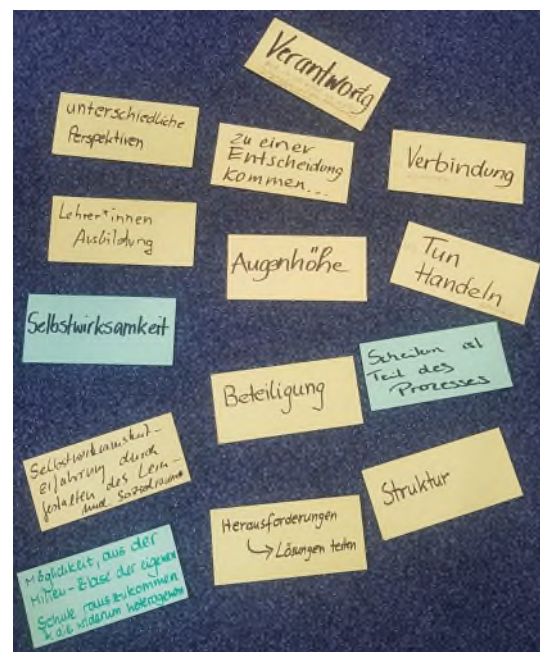 Verantwortg
unterschiedliche
Perspektiven
zu einer
Entscheidung
kommen...
Verbindung
Lehrer*innen
Ausbildung
Augenhöhe
Tun
Handeln
Selbstwirksamkeit
Scheitern ist
Teil des
Prozesses
Beteiligung
Selbstwirksamkeit-
erfahrung durch
gestalten des Lern-
und Sozialraums
Struktur
Herausforderungen
↳ Lösungen teilen
Möglichkeit, aus der
Milieu-Blase der eigenen
Schule rauszukommen
die widerum heterogener